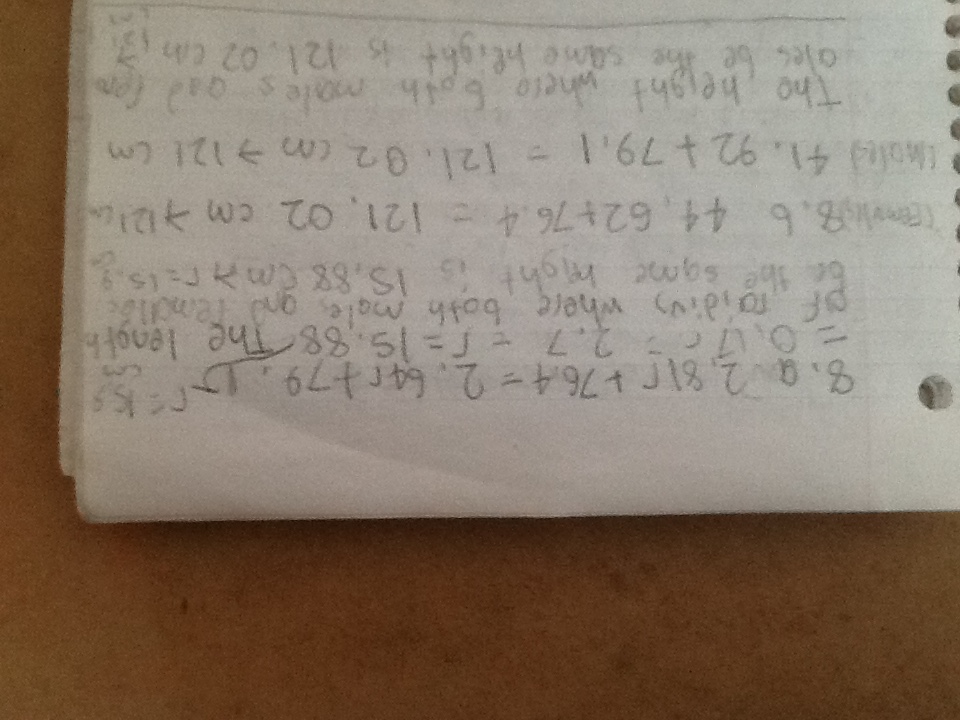 8. a 2.81r + 76.4 = 2.64r + 79.1 r = 15.9 cm
= 0.17r = 2.7 = r = 15.88 The length
of raidius where both males and females
be the same hight is 15.88 cm → r = 15.9 cm
(Females) 8. b 44.62 + 76.4 = 121.02 cm → 121 cm
(males) 41.92 + 79.1 = 121.02 cm → 121 cm
The height where both males and fem
ales be the same height is 121.02 cm →